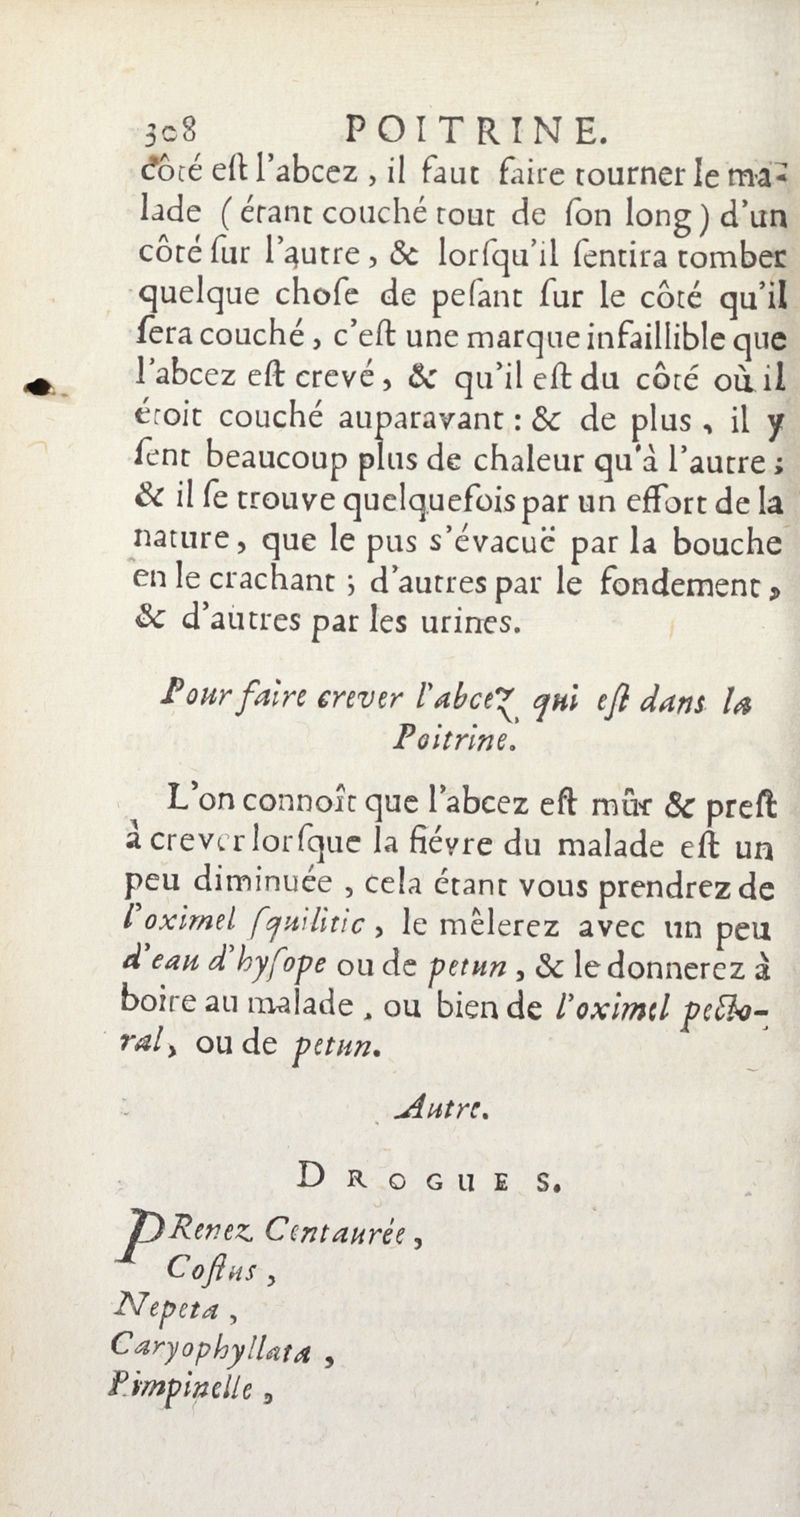 308 POITRINE.
côté eſt l'abcez , il faut faire tourner le ma-
lade ( étant couché tout de ſon long ) d'un
côté ſur l'autre , & lorſqu'il ſentira tomber
quelque choſe de peſant ſur le côté qu'il
ſera couché , c'eſt une marque infaillible que
l'abcez eſt crevé , & qu'il eſt du côté où il
étoit couché auparavant : & de plus , il y
ſent beaucoup plus de chaleur qu'à l'autre ;
& il ſe trouve quelquefois par un effort de la
nature , que le pus s'évacuë par la bouche
en le crachant ; d'autres par le fondement ,
& d'autres par les urines.
Pour faire crever l'abcez qui eſt dans la
Poitrine.
L'on connoît que l'abcez eſt mûr & preſt
à crever lorſque la fiévre du malade eſt un
peu diminuée , cela étant vous prendrez de
l'oximel ſquilitic , le mêlerez avec un peu
d'eau d'hyſope ou de petun , & le donnerez à
boire au malade , ou bien de l'oximel pecto-
ral , ou de petun.
Autre.
DROGUES.
PRenez Centaurée ,
Coſtus ,
Nepeta ,
Caryophyllata ,
Pimpinelle ,